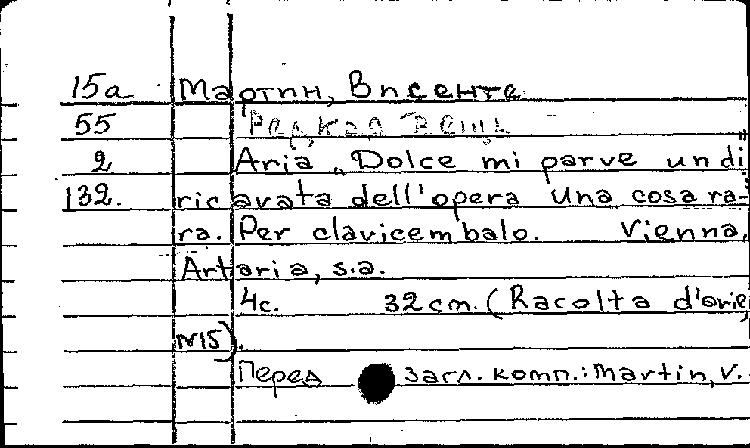 15а Мартин, Висенте
55 Редкая вещь
2 Aria „Dolce mi parve un di"
132. ricavata dell'opera Una cosa ra-
ra. Per clavicembalo. Vienna,
Artaria, s.a.
4с. 32 cm. (Racolta d'arie,
N15).
Перед загл. комп.: Martin, V.